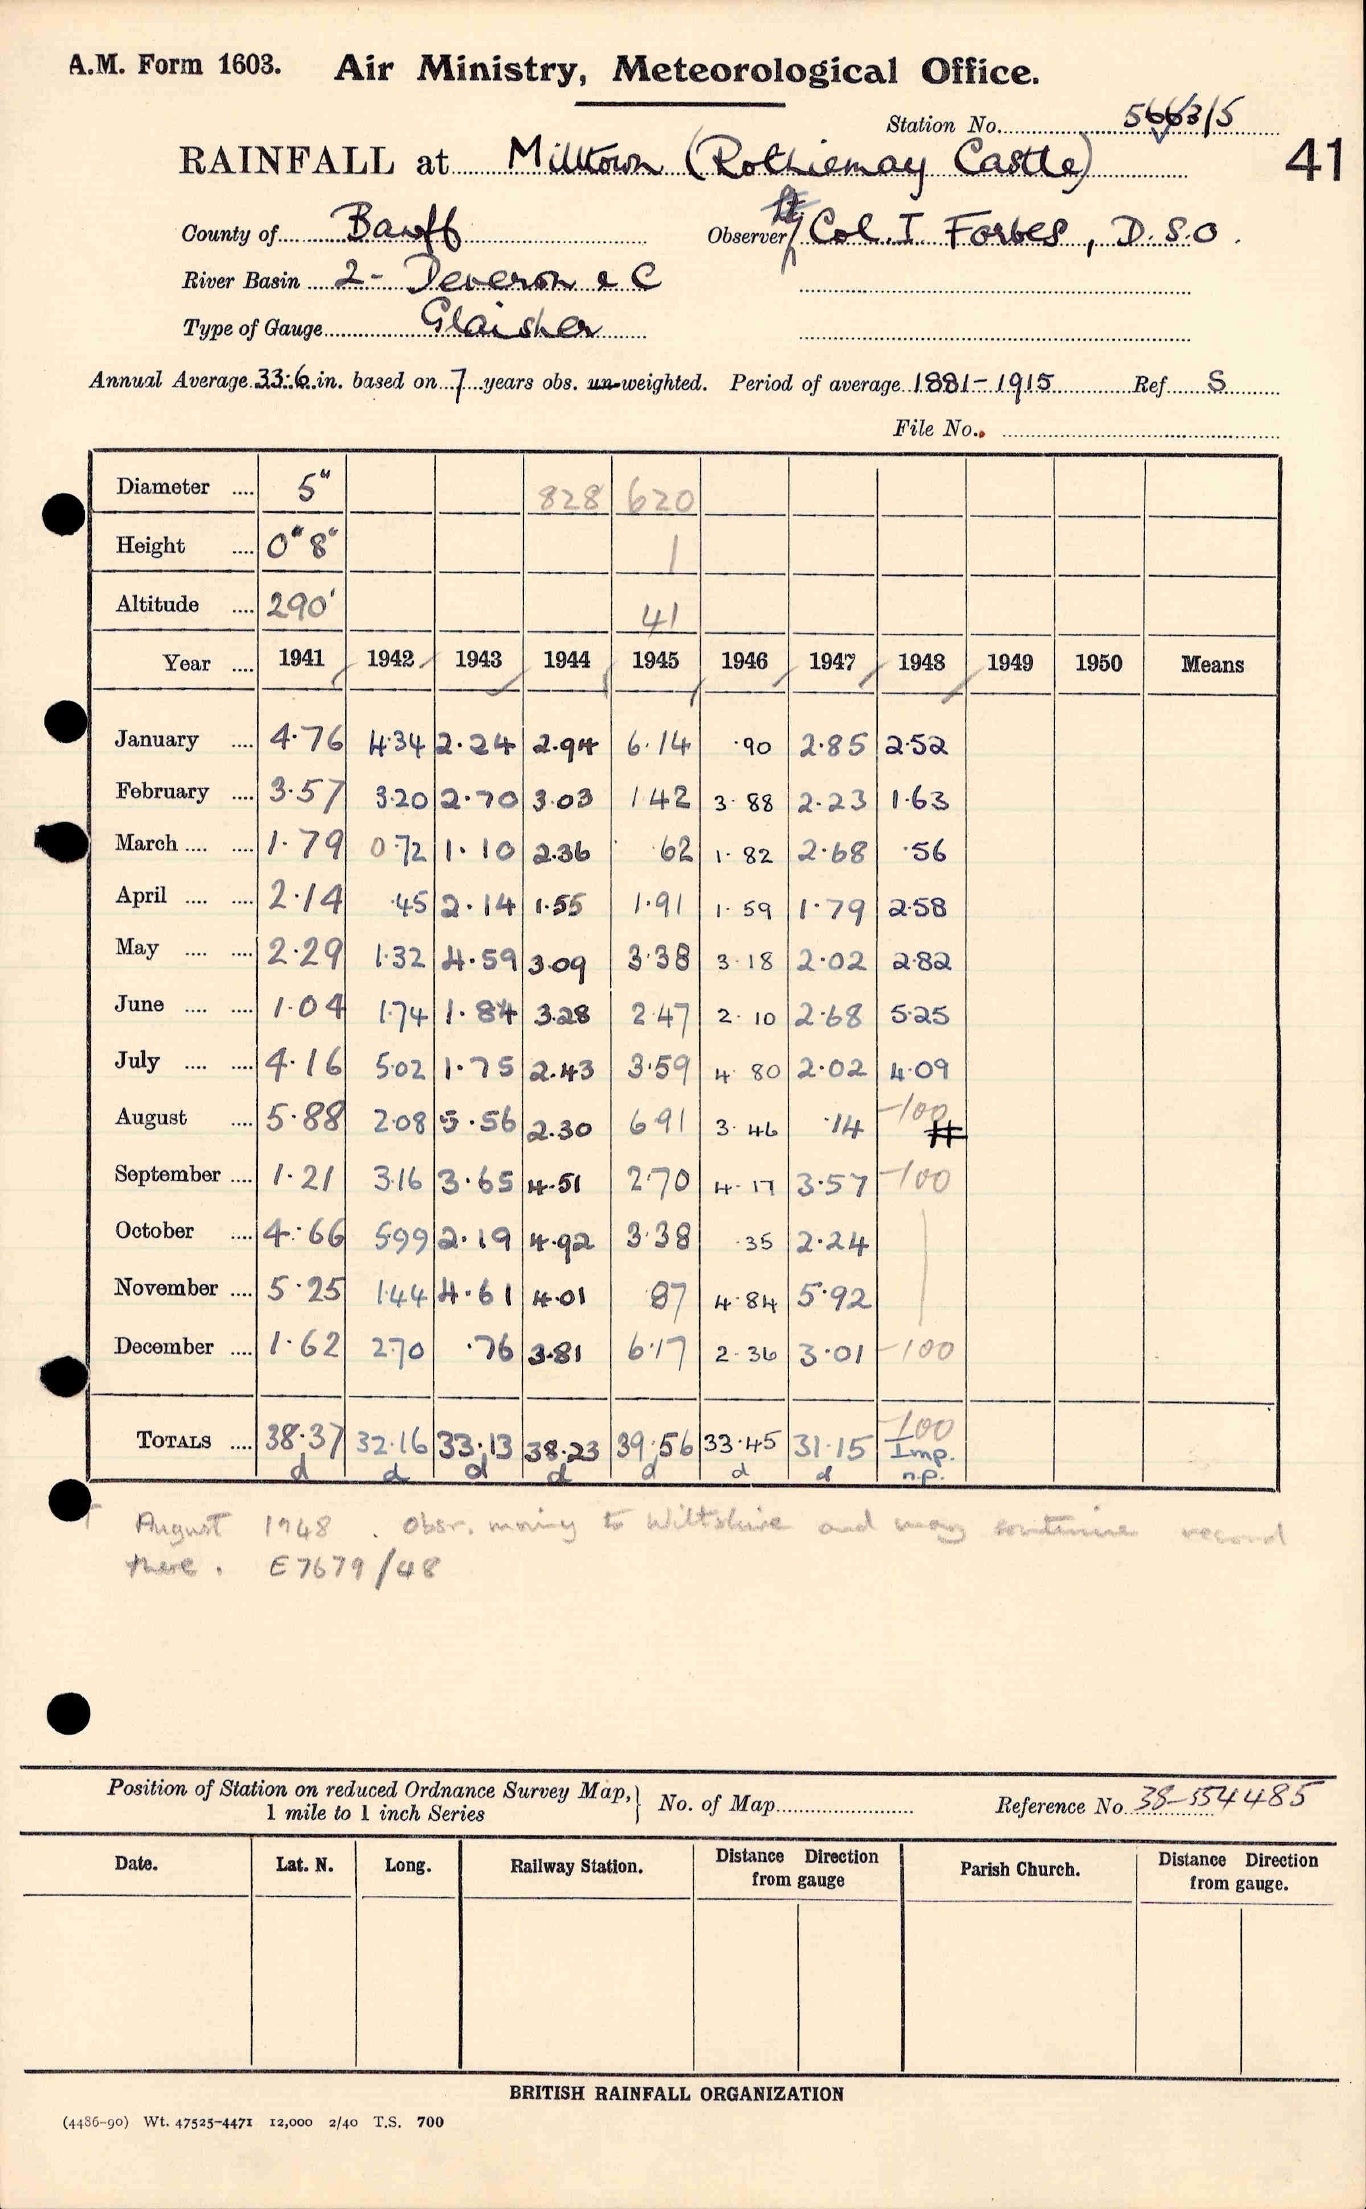 A.M. Form 1603. Air Ministry, Meteorological Office.
Station No. 5663/5
RAINFALL at Milltown (Rothiemay Castle) 41
County of Banff Observer Lt Col. I Forbes, D.S.O.
River Basin 2- Deveron & C
Type of Gauge Glaisher
Annual Average 33.6 in. based on 7 years obs. un-weighted. Period of average 1881-1915 Ref S
File No.
Diameter .... 5" 828 620
Height .... 0" 8" 1
Altitude .... 290' 41
Year .... 1941 1942 1943 1944 1945 1946 1947 1948 1949 1950 Means
January .... 4.76 4.34 2.24 2.94 6.14 .90 2.85 2.52
February .... 3.57 3.20 2.70 3.03 1.42 3.88 2.23 1.63
March .... .... 1.79 0.72 1.10 2.36 .62 1.82 2.68 .56
April .... .... 2.14 .45 2.14 1.55 1.91 1.59 1.79 2.58
May .... .... 2.29 1.32 4.59 3.09 3.38 3.18 2.02 2.82
June .... .... 1.04 1.74 1.84 3.28 2.47 2.10 2.68 5.25
July .... .... 4.16 5.02 1.75 2.43 3.59 4.80 2.02 4.09
August .... 5.88 2.08 5.56 2.30 6.91 3.46 .14 -100 #
September .... 1.21 3.16 3.65 4.51 2.70 4.17 3.57 -100
October .... 4.66 5.99 2.19 4.92 3.38 .35 2.24
November .... 5.25 1.44 4.61 4.01 .87 4.84 5.92
December .... 1.62 2.70 .76 3.81 6.17 2.36 3.01 -100
TOTALS .... 38.37 32.16 33.13 38.23 39.56 33.45 31.15 -100 Imp.
d d d d d d d n.p.
† August 1948. Obsr. moving to Wiltshire and may continue record
there. E7679/48
Position of Station on reduced Ordnance Survey Map,
1 mile to 1 inch Series
No. of Map Reference No. 38-554485
Date. Lat. N. Long. Railway Station. Distance from gauge Direction Parish Church. Distance Direction from gauge.
BRITISH RAINFALL ORGANIZATION
(4486-90) Wt. 47525-4471 12,000 2/40 T.S. 700